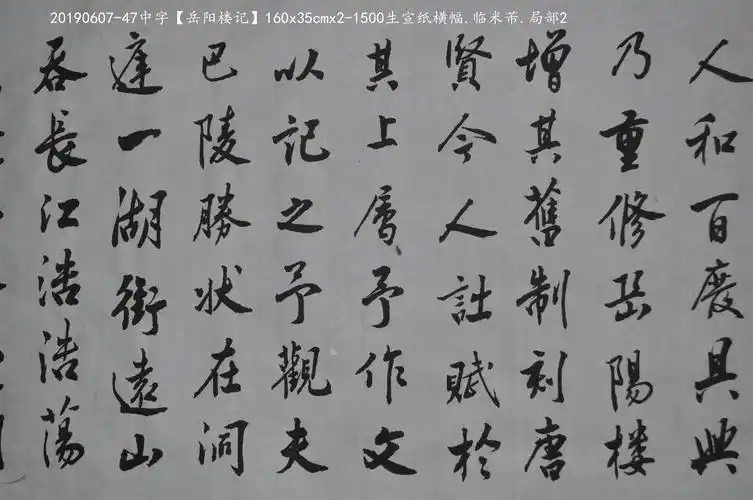 20190607-47中字【岳阳楼记】160x35cmx2-1500生宣纸横幅.临米芾.局部2
人和百廢具興
乃重修岳陽楼
增其舊制刻唐
賢今人詩賦於
其上属予作文
以記之予觀夫
巴陵勝状在洞
庭一湖銜遠山
吞長江浩浩蕩